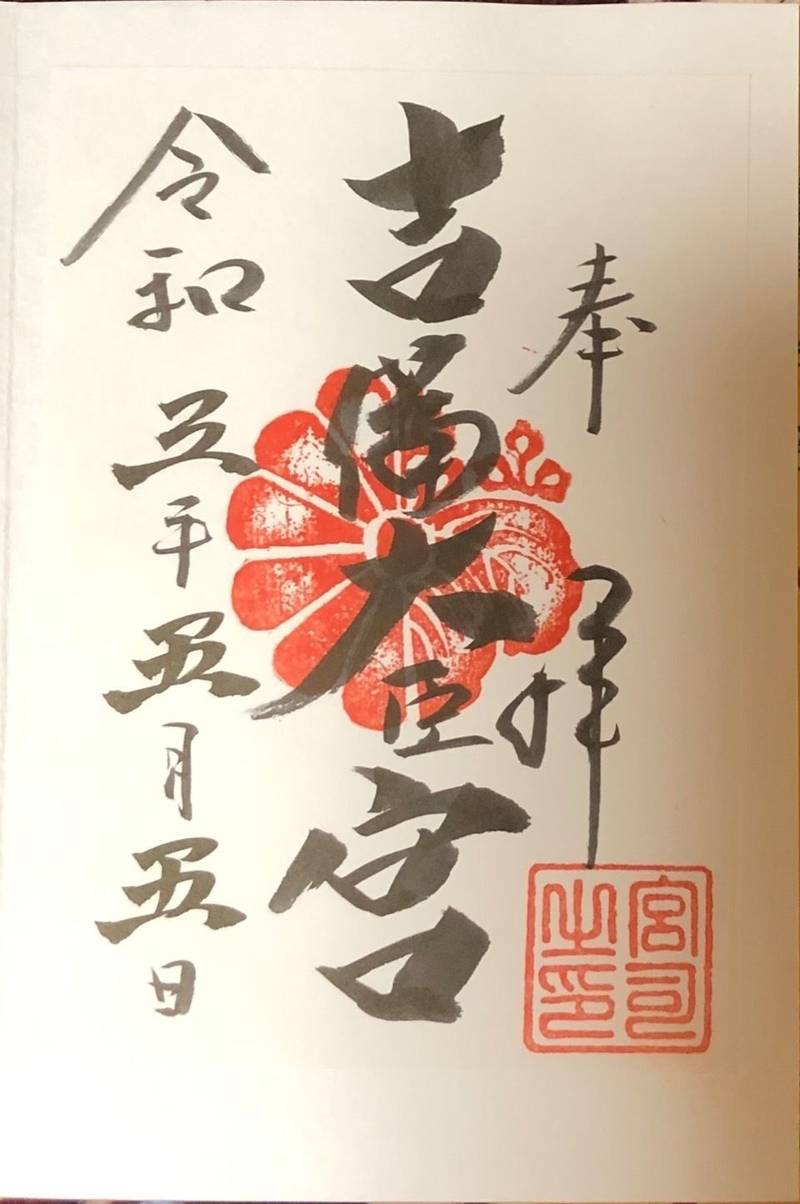 奉拝
宮司
之印
吉備大臣宮
令和五年五月五日